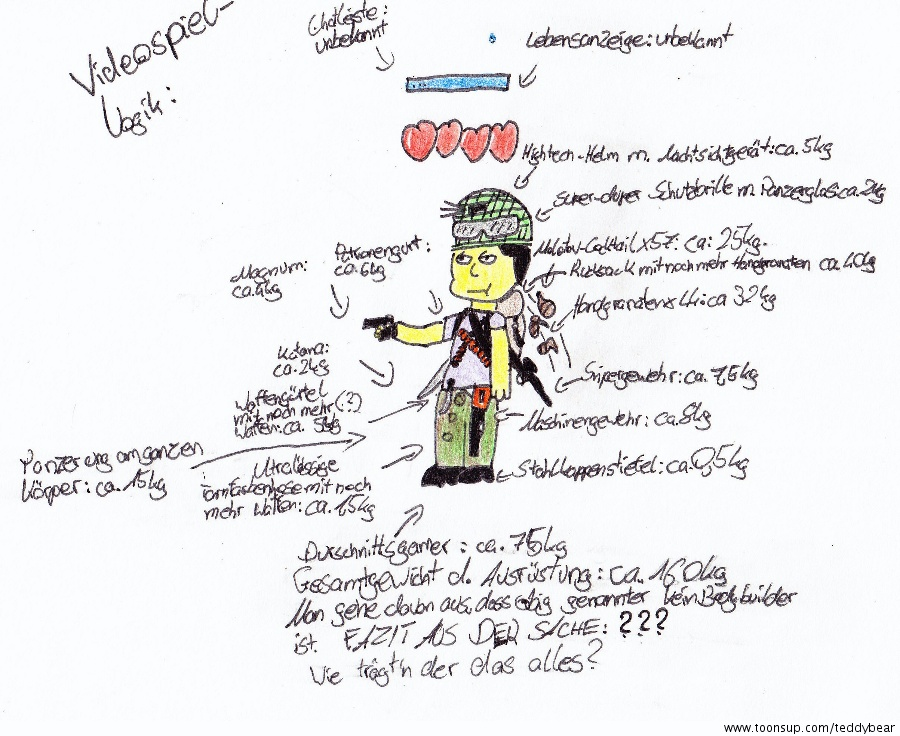 Videospiel-
Logik:
unbekannt
Lebensanzeige: unbekannt
Hightech-Helm m. Nachtsichtgerät: ca. 5kg
Super-duper Schutzbrille m. Panzerglas: ca. 2kg
Molotow-Cocktail x57: ca: 25kg.
Rucksack mit noch mehr Handgranaten ca. 40kg
Handgranaten x44: ca 32kg
Patronengurt:
ca. 6kg
Magnum:
ca. 4kg
Katana:
ca. 2kg
Waffengürtel
mit noch mehr (?)
Waffen: ca. 5kg
Snipergewehr: ca. 7,5kg
Maschinengewehr: ca. 8kg
Stahlkappenstiefel: ca. 0,5kg
Panzerung am ganzen
Körper: ca. 15kg
Ultralässige
Tarnfarbenhose mit noch
mehr Waffen: ca. 1,5kg
Durschnittsgamer: ca. 75kg
Gesamtgewicht d. Ausrüstung: ca. 160kg
Man gehe davon aus, dass ebig genannter kein Bodybuilder
ist. FAZIT AUS DER SACHE: ???
Wie trägt'n der das alles?
www.toonsup.com/teddybear